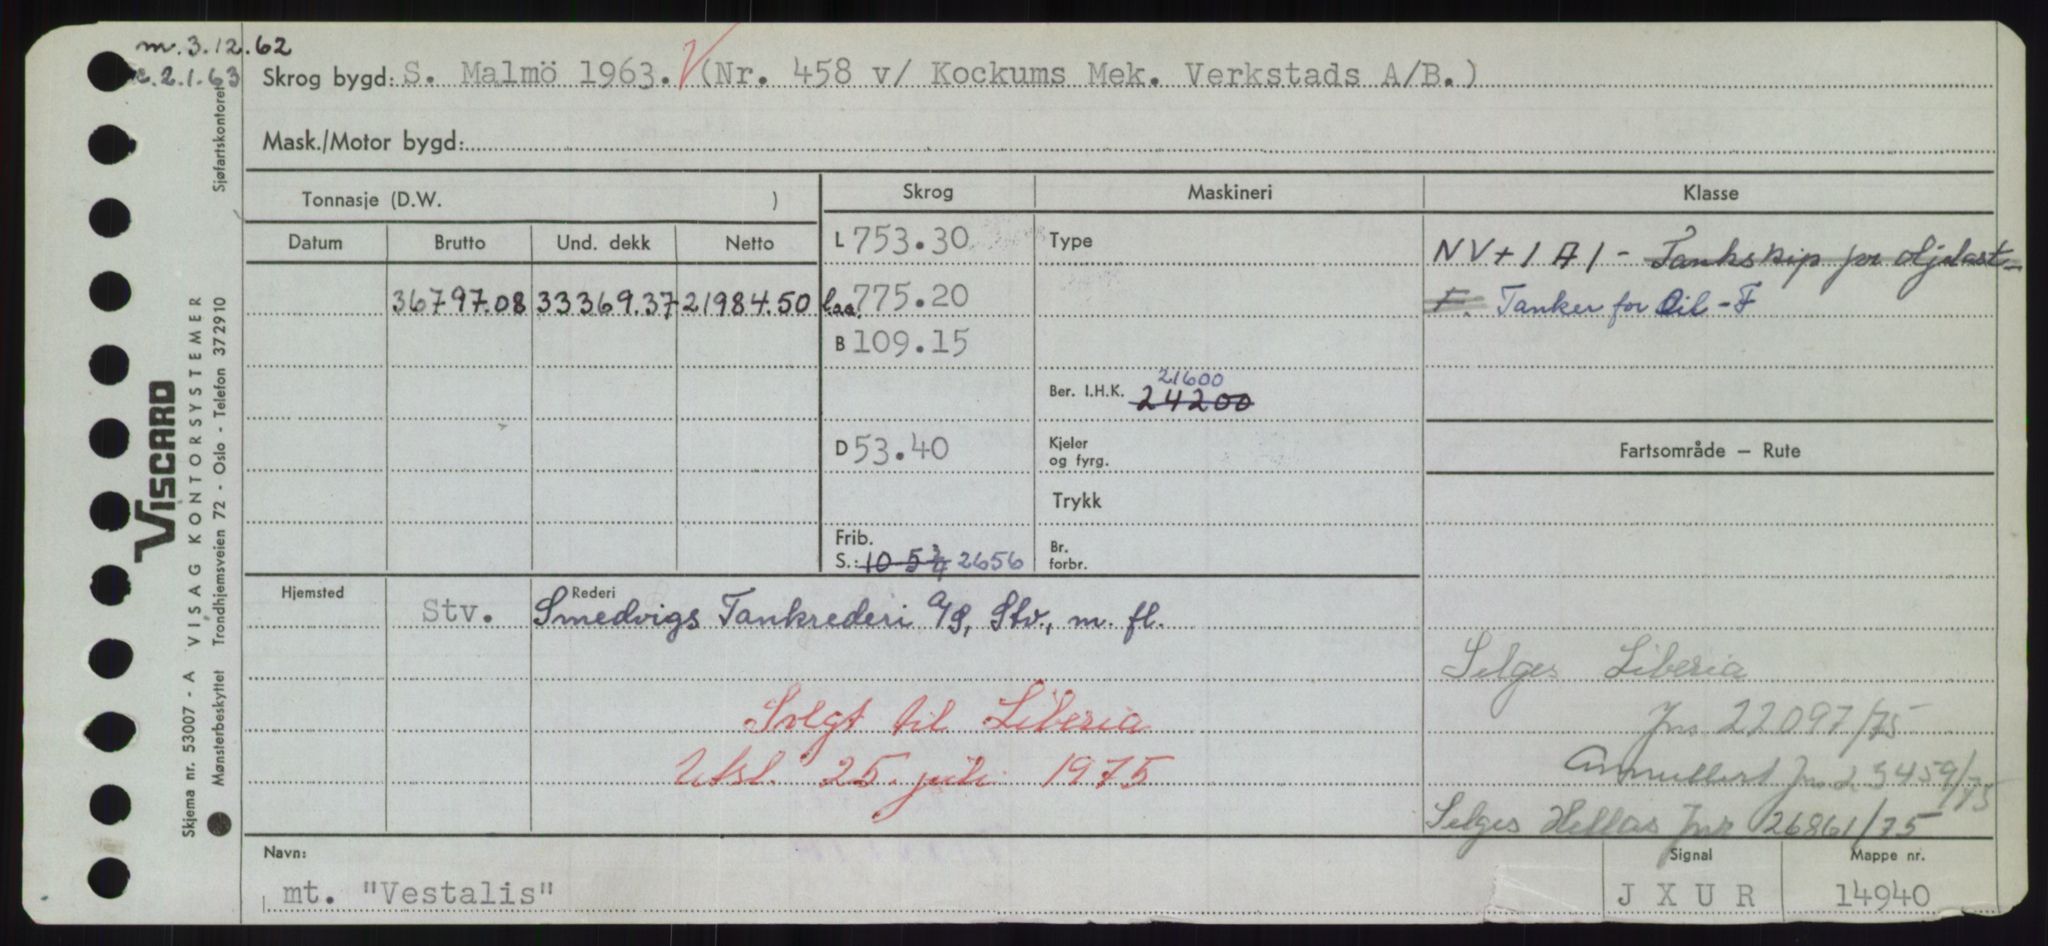 m. 3.12.62
2.1.63
Skrog bygd: S. Malmö 1963. V (Nr. 458 v/ Kockums Mek. Verkstads A/B.)
Mask./Motor bygd:
Tonnasje (D.W. )
Skrog
Maskineri
Klasse
Datum
Brutto
Und. dekk
Netto
L 753.30
Type
NV + 1 A 1 - Tankskip for oljelast -
36797.08 33369.37 21984.50
Loa. 775.20
F. Tanker for Oil - F
B 109.15
21600
Ber. I.H.K. 24200
D 53.40
Kjeler
og fyrg.
Fartsområde — Rute
Trykk
Frib.
S.: 10-5 3/4 2656
Br.
forbr.
Hjemsted
Stv.
Rederi
Smedvigs Tankrederi A/S, Stv., m. fl.
Selges Liberia
Solgt til Liberia
Jnr 22097/75
Utsl. 25. juli 1975
Annullert Jnr 23459/75
Selges Hellas Jnr 26861/75
Navn:
mt. "Vestalis"
Signal
JXUR
Mappe nr.
14940
Skjema nr. 53007 - A VISAG KONTORSYSTEMER
VISCARD
Mønsterbeskyttet Trondhjemsveien 72 - Oslo - Telefon 372910 Sjøfartskontoret